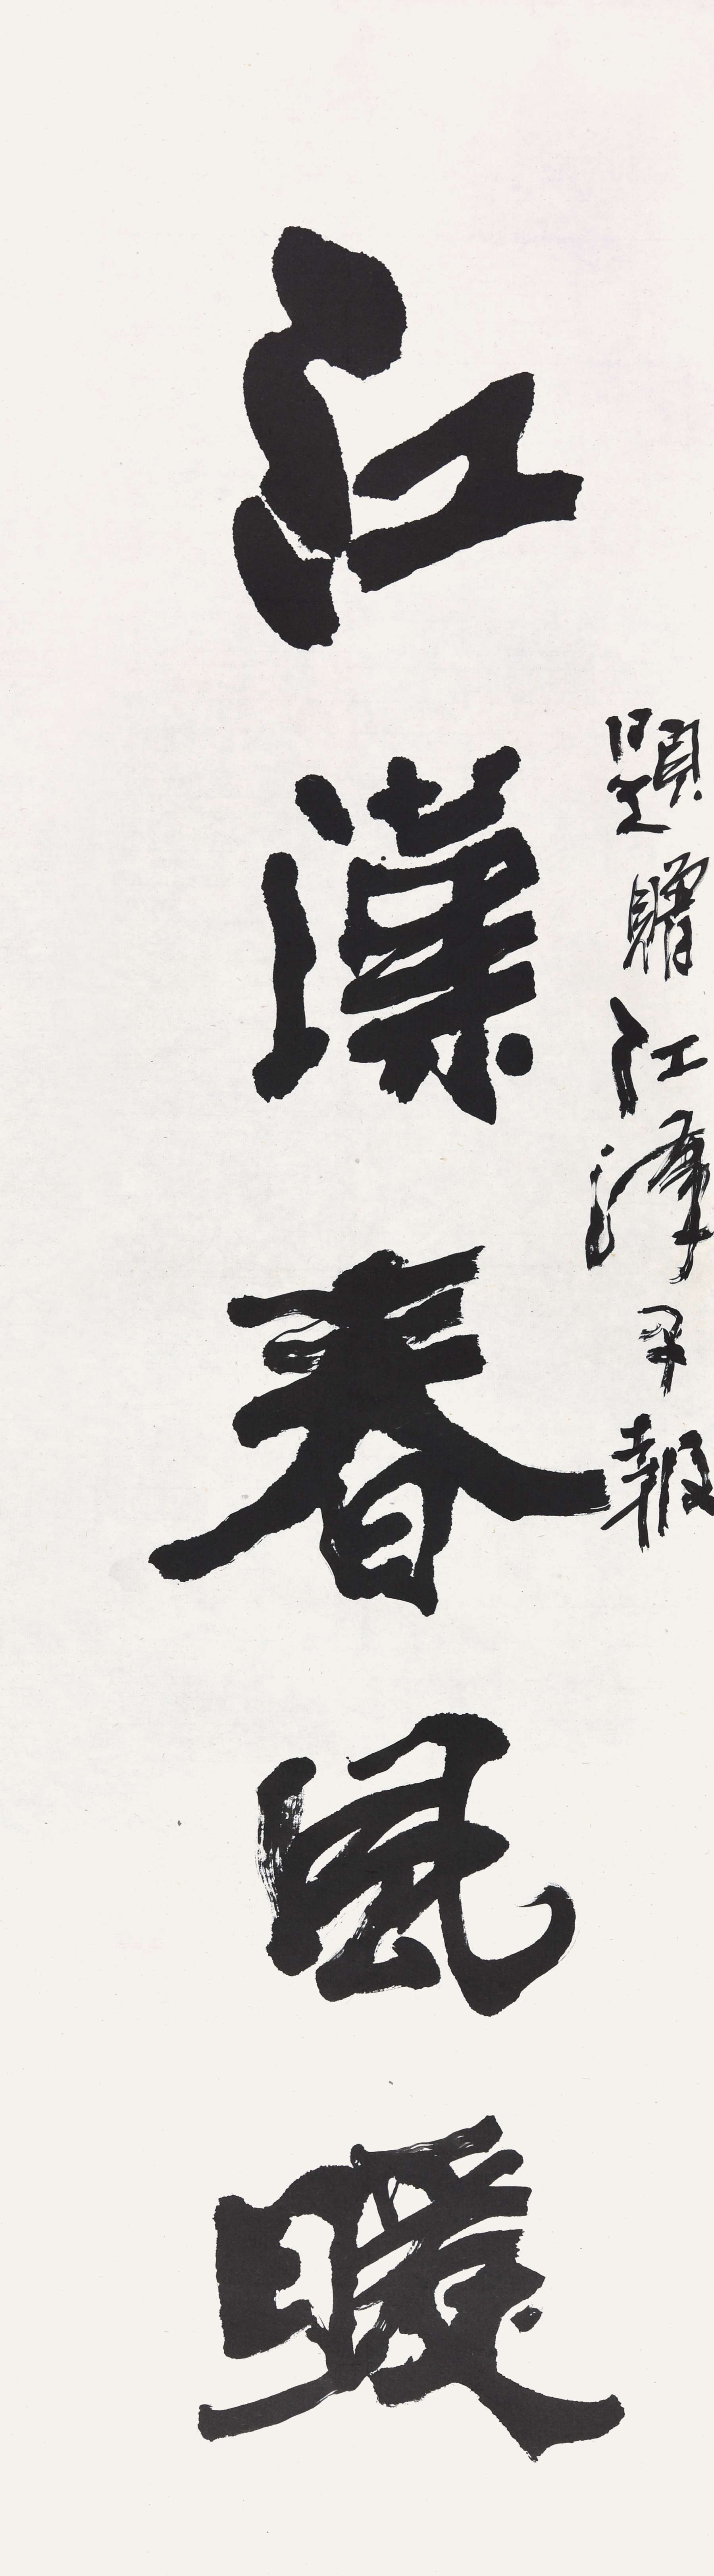 題贈江漢早報
江漢春風暖